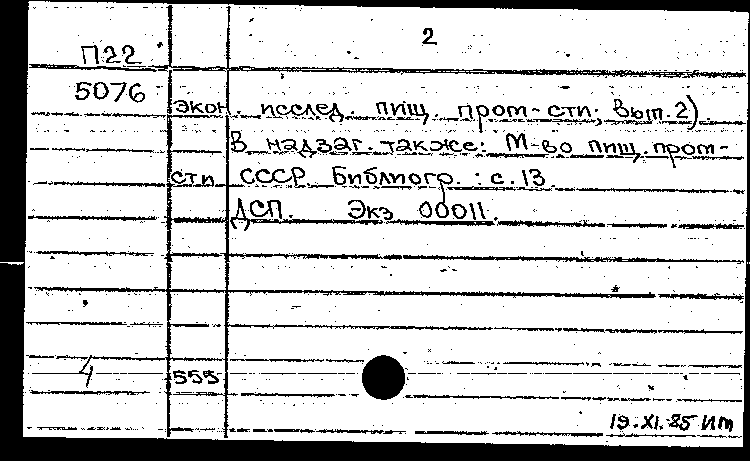 2
П22
5076 экон. исслед. пищ. пром-сти; Вып. 2).
В надзаг. также: М-во пищ. пром-
сти СССР. Библиогр.: с. 13.
ДСП. Экз 00011.
4 555
19.XI.85 Ит